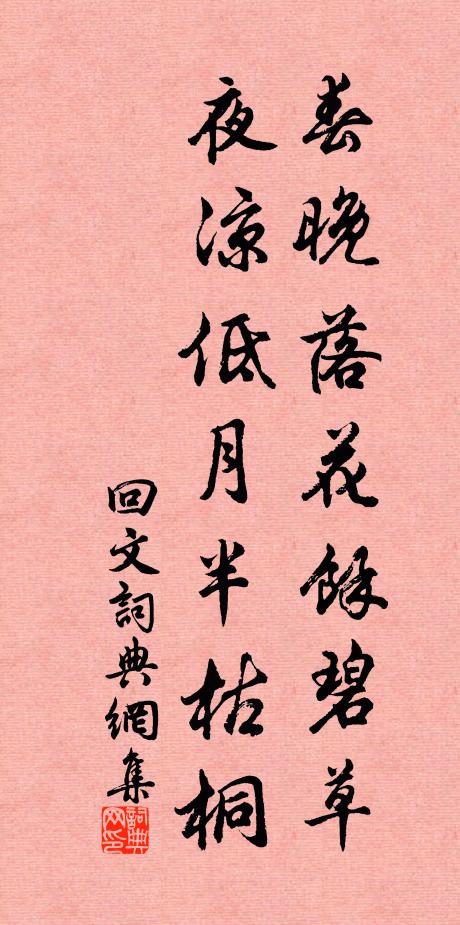 春晚落花餘碧草
夜涼低月半枯桐
回文詞典網集
詞典網印